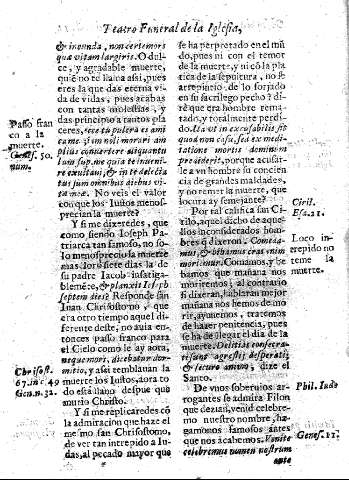 Teatro Funeral de la Iglesia,
& iucunda, non certe mors
qua vitam largiris. O dul-
ce, y agradable muerte,
quiē no te llama asi, pues
eres la que das eterna vi-
da de vidas, pues acabas
con tantas molestias, y
das principio a tantos pla
ceres,
Passo fran
co a la
muerte.
Genes. 50.
num.
rmæ. No veis el valor
con que los Iustos menos-
precian la muerte?
Y si me dixeredes, que
como siendo Ioseph Pa-
triarca tan famoso, no so-
lo menosprecio la muerte
mas lloró siete dias la de
su padre Iacob infatiga-
blemēte, & planxit Ioseph
septem dies? Responde san
Iuan Chrisostomo, y que
era otro tiempo aquel di-
ferente deste, no auia ento-
nces passo franco para
el Cielo como le ay aora,
neque mori, dicebatur dor-
mitio, y asi temblauan la
muerte los Iustos, aora to-
do está llano despue que
murio Christo.
Chrisost.
67. in c. 49
Y si me replicaredes cō
la admiracion que haze el
mesmo san Chrisostomo,
de ver tan intrepido a Iu-
das, al pecado mayor que
se ha perpetrado en el mū
do, pues ni con el temor
de la muerte, ni cō la pla
tica de la sepultura, no se
arrepintio de lo forjado
en su sacrilego pecho? di-
rē que era hombre rema-
tado, y totalmente perdi-
do. Ita vt in excusabilis sit
quod non casu, sed ex medi-
tatione mortis dominum
prodiderit, porque acusar-
le a vn hombre su concien
cia de grandes maldades,
y no temer la muerte, que
locura ay semejante?
Por tal califica san Ci-
rilo, aquel dicho de aque-
llos inconsiderados hom-
bres q̄ dixeron. Comeda-
mus, & bibamus cras enim
morimur. Comamos, y be
bamos que mañana nos
moriremos, al contrario
si dixeran, hablaran mejor
mañana nos hemos de mo
rir, ayunemos, tratemos
de hazer penitencia, pues
se ha de llegar el dia de la
muerte.
Santo.
Ciril.
Esa. 21.
Loco in-
trepido no
teme la
muerte.
De vnos soberuios ar-
rogantes se admira Filon
que dezian, venid celebre-
mos nuestro nombre, ha-
gamonos famosos antes
que nos acabemos. Venite
celebremus nomen nostrum
ante
Phil. Iudo
Genes. 11.